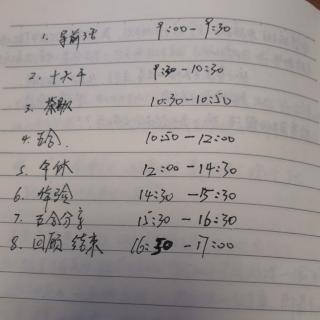 1. 导前语 9:00 - 9:30
2. 十大干 9:30 - 10:30
3. 茶歇 10:30 - 10:50
4. 五会 10:50 - 12:00
5. 午休 12:00 - 14:30
6. 体验 14:30 - 15:30
7. 五会分享 15:30 - 16:30
8. 回顾 结束 16:30 - 17:00